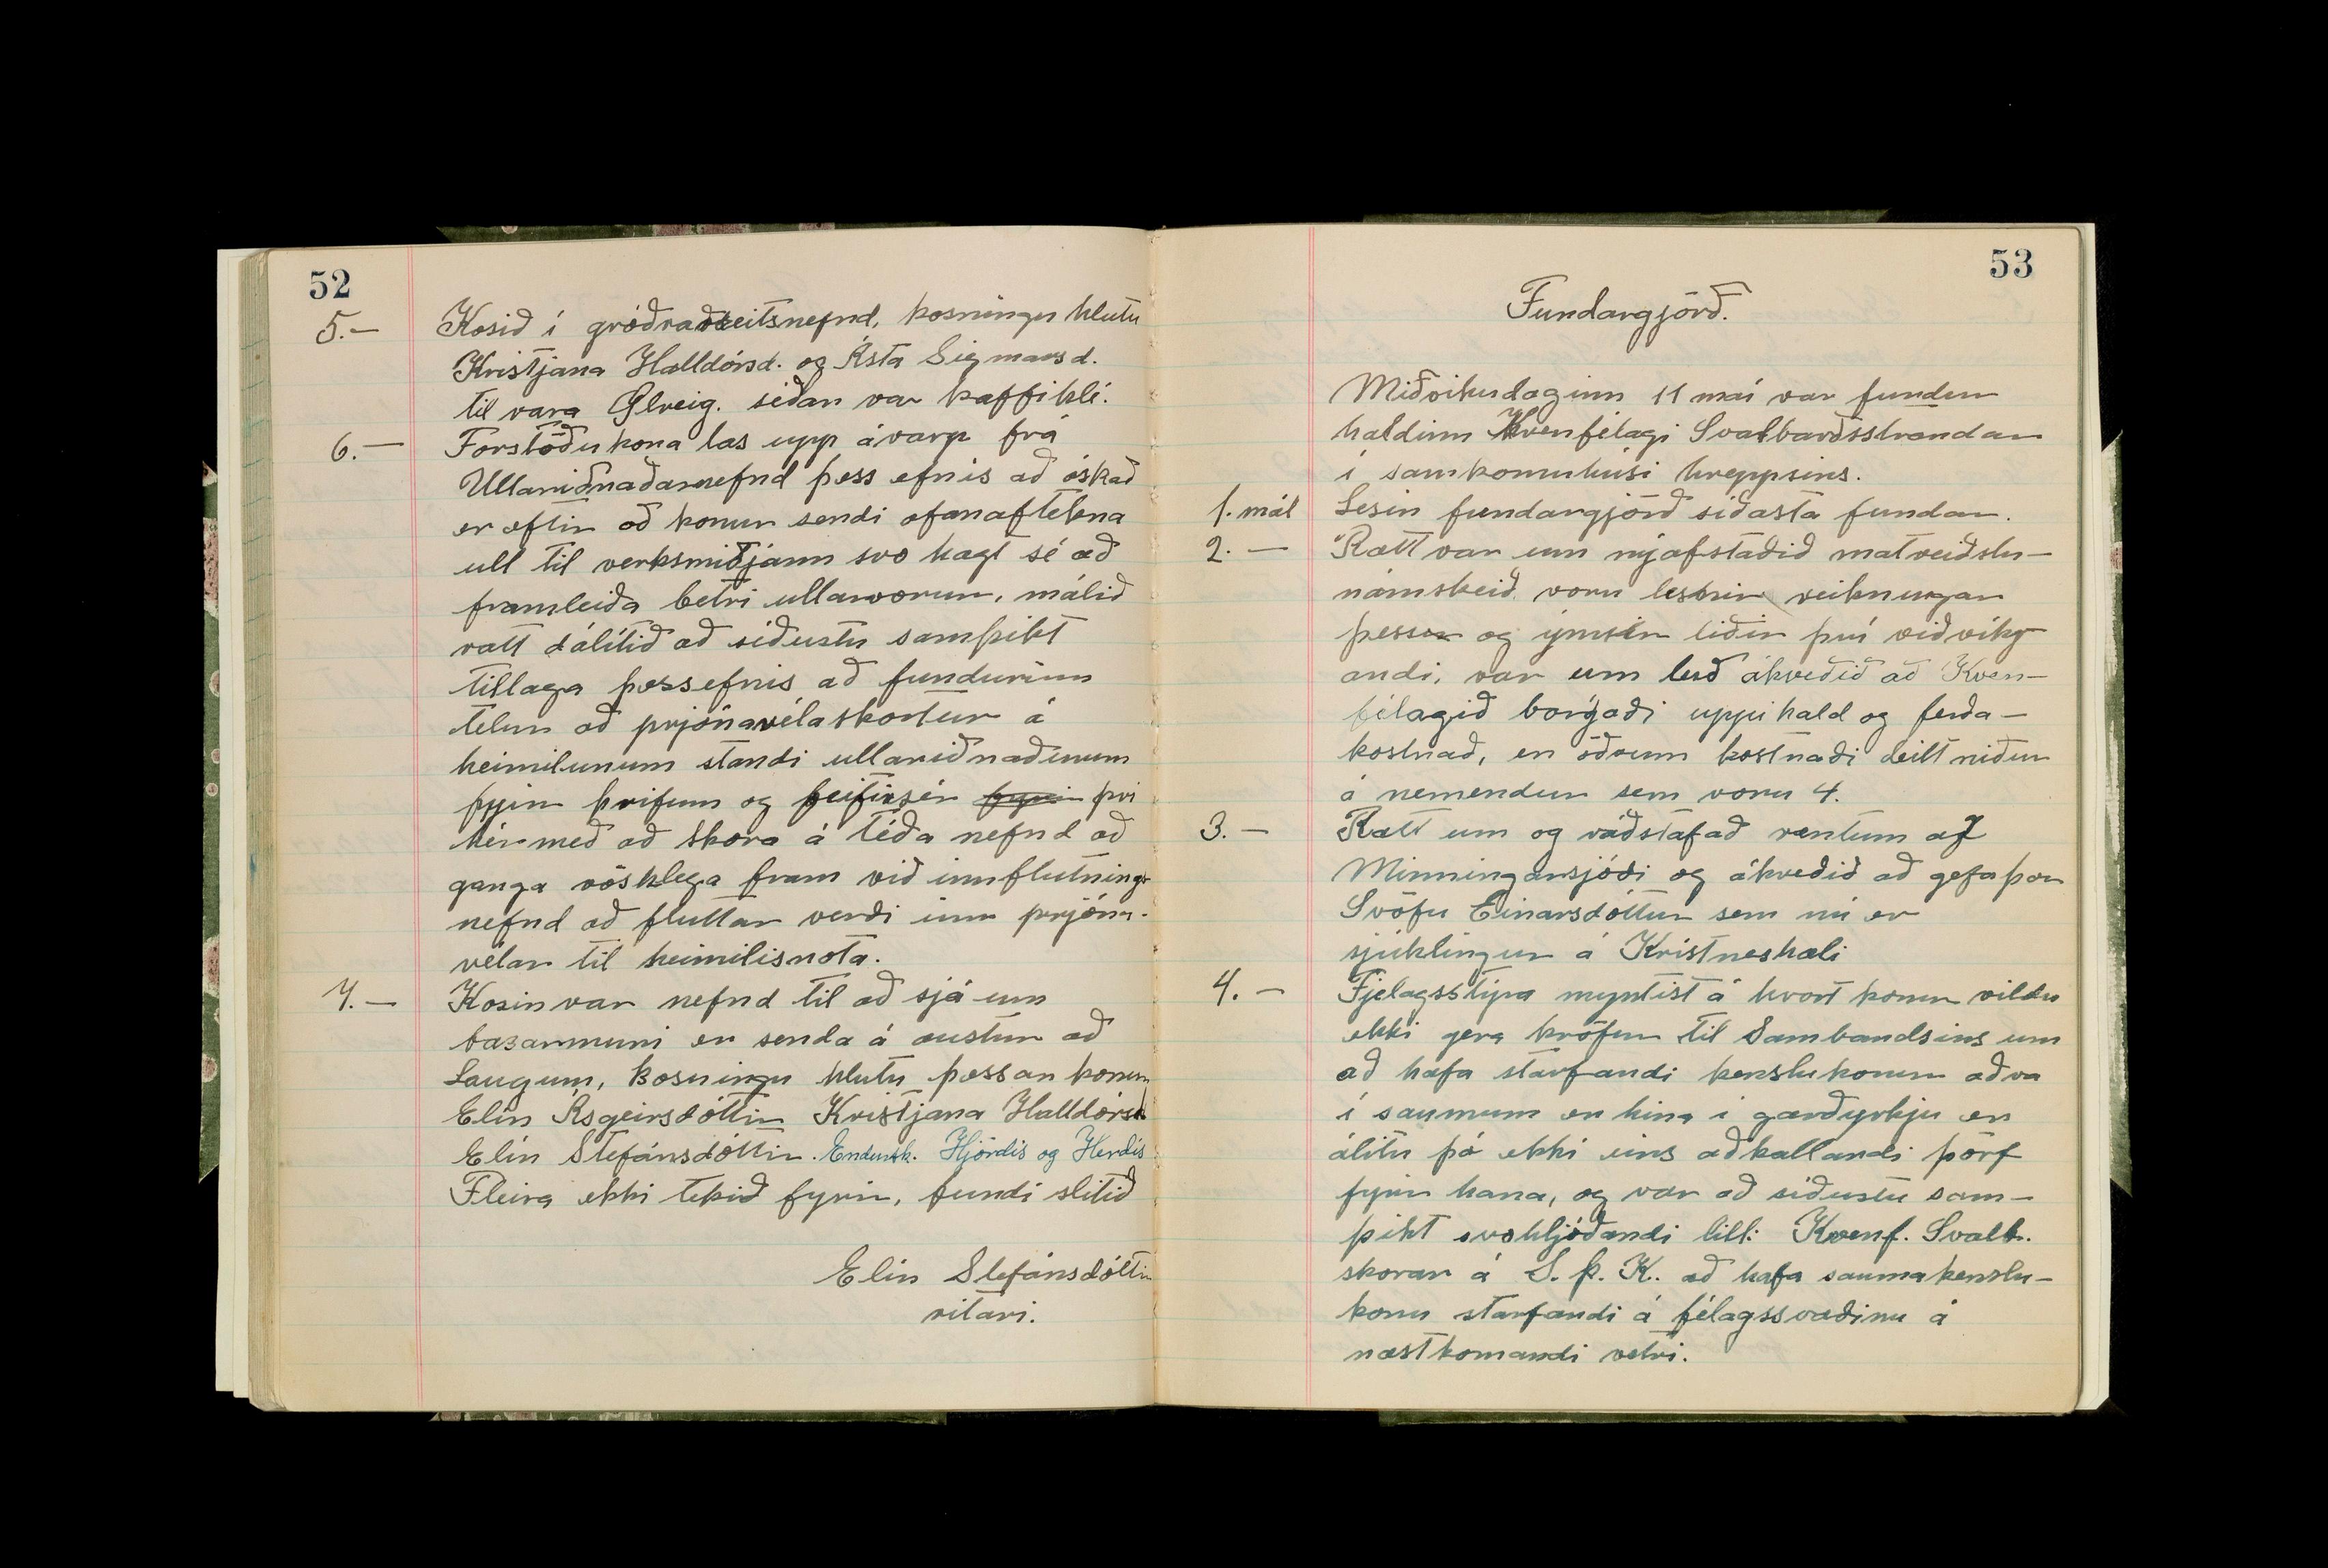 52
5.— Kosið í gróðrareitsnefnd, kosningu hlutu
Kristjana Halldórsd. og Ásta Sigmarsd.
til vara Sólveig. siðan var kaffihlé.
6.— Forstöðukona las upp ávarp frá
Ullariðnaðarnefnd þess efnis að óskað
er eftir að konur sendi ofanaftekna
ull til verksmiðjann svo hægt sé að
framleiða betri ullarvorur, málið
rætt dálitið að síðustu samþikt
tillaga þessefnis að fundurinn
telur að prjónavélaskortur á
heimilunum standi ullariðnaðinum
fyrir þrifum og beitir sér fyrir þvi
hér með að skora á téða nefnd að
ganga rösklega fram við innflutnings
nefnd að fluttar verði inn prjóna-
vélar til heimilisnota.
7.— Kosin var nefnd til að sjá um
bazarmuni er senda á austur að
Laugum, kosningu hlutu þessar konur
Elín Ásgeirsdóttir Kristjana Halldórsd
Elín Stefánsdóttir. Endursk. Hjördis og Herdís
Fleira ekki tekið fyrir, fundi slitið
Elín Stefánsdóttir
ritari.
53
Fundargjörð.
Miðvikudaginn 11 maí var fundur
haldinn Kvenfélagi Svalbarðsstrandar
í samkomuhúsi hreppsins.
1. mál Lesin fundargjörð síðasta fundar.
2. — Rætt var um nýafstaðið matreiðslu-
námskeið voru lesnir reikningar
þessa og ýmsir liðir því viðvíkj-
andi, var um leið ákveðið að Kven-
félagið borgaði uppihald og ferða-
kostnað, en öðrum kostnaði deilt niður
á nemendur sem voru 4.
3. — Rætt um og ráðstafað rentum af
Minningarsjóði og ákveðið að gefa þær
Svöfu Einarsdóttur sem nú er
sjúklingur á Kristneshæli
4. — Fjelagsstýra myntist á hvort konur vildu
ekki gera kröfur til Sambandsins um
að hafa starfandi kenslukonur aðra
í saumum en hina í garðyrkju en
álitu þó ekki eins aðkallandi þörf
fyrir hana, og var að síðustu sam-
þikt svohljóðandi till: Kvenf. Svalb.
skorar á S. Þ. K. að hafa saumakenslu-
konu starfandi á félagssvæðinu á
næstkomandi vetri.